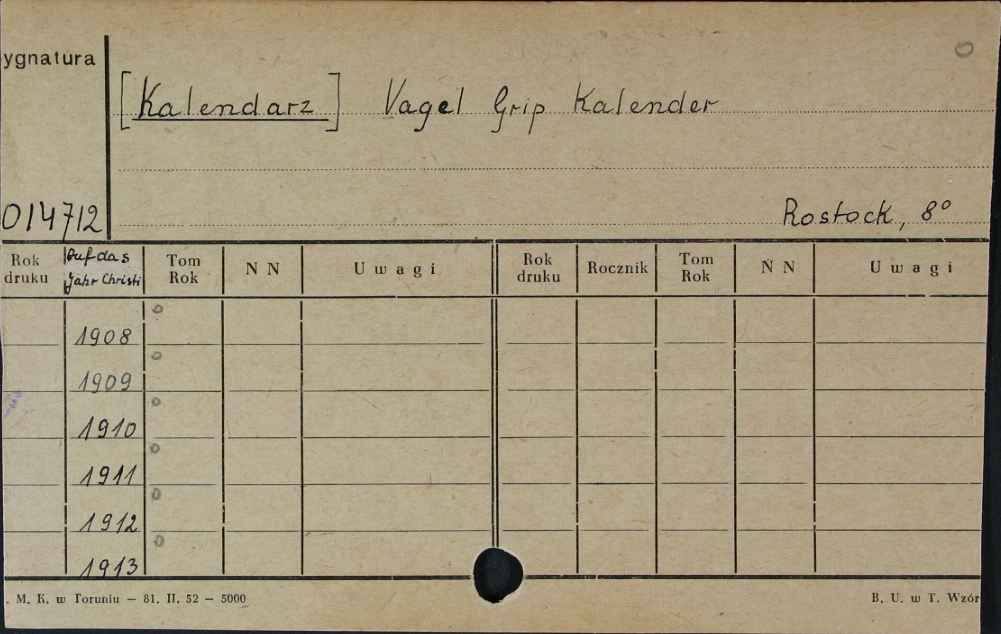 ygnatura
[Kalendarz] Vagel Grip Kalender
014712
Rostock, 8°
Rok druku
Auf das Jahr Christi
Tom Rok
N N
Uwagi
Rok druku
Rocznik
Tom Rok
N N
Uwagi
1908
1909
1910
1911
1912
1913
. M. K. w Toruniu — 81. II. 52 — 5000
B. U. w T. Wzór